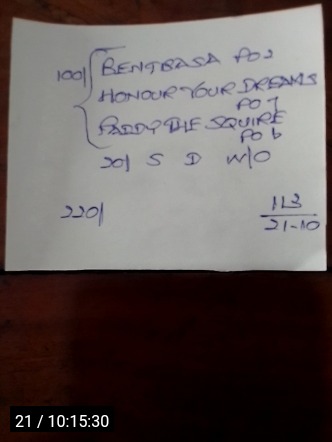 100/ BENTBASA PO 2
HONOUR YOUR DREAMS
PO 7
PADDY THE SQUIRE
PO 6
20/ S D W/O
220/
113
21-10
21 / 10:15:30